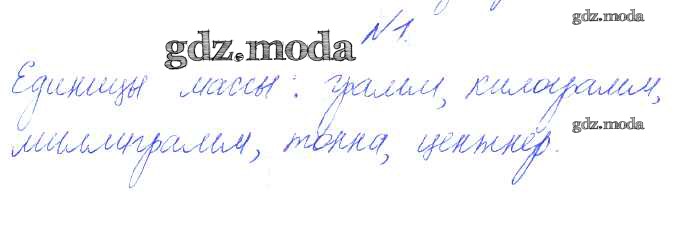 gdz.moda
№1.
gdz.moda
Единицы массы: грамм, килограмм,
миллиграмм, тонна, центнер.
gdz.moda